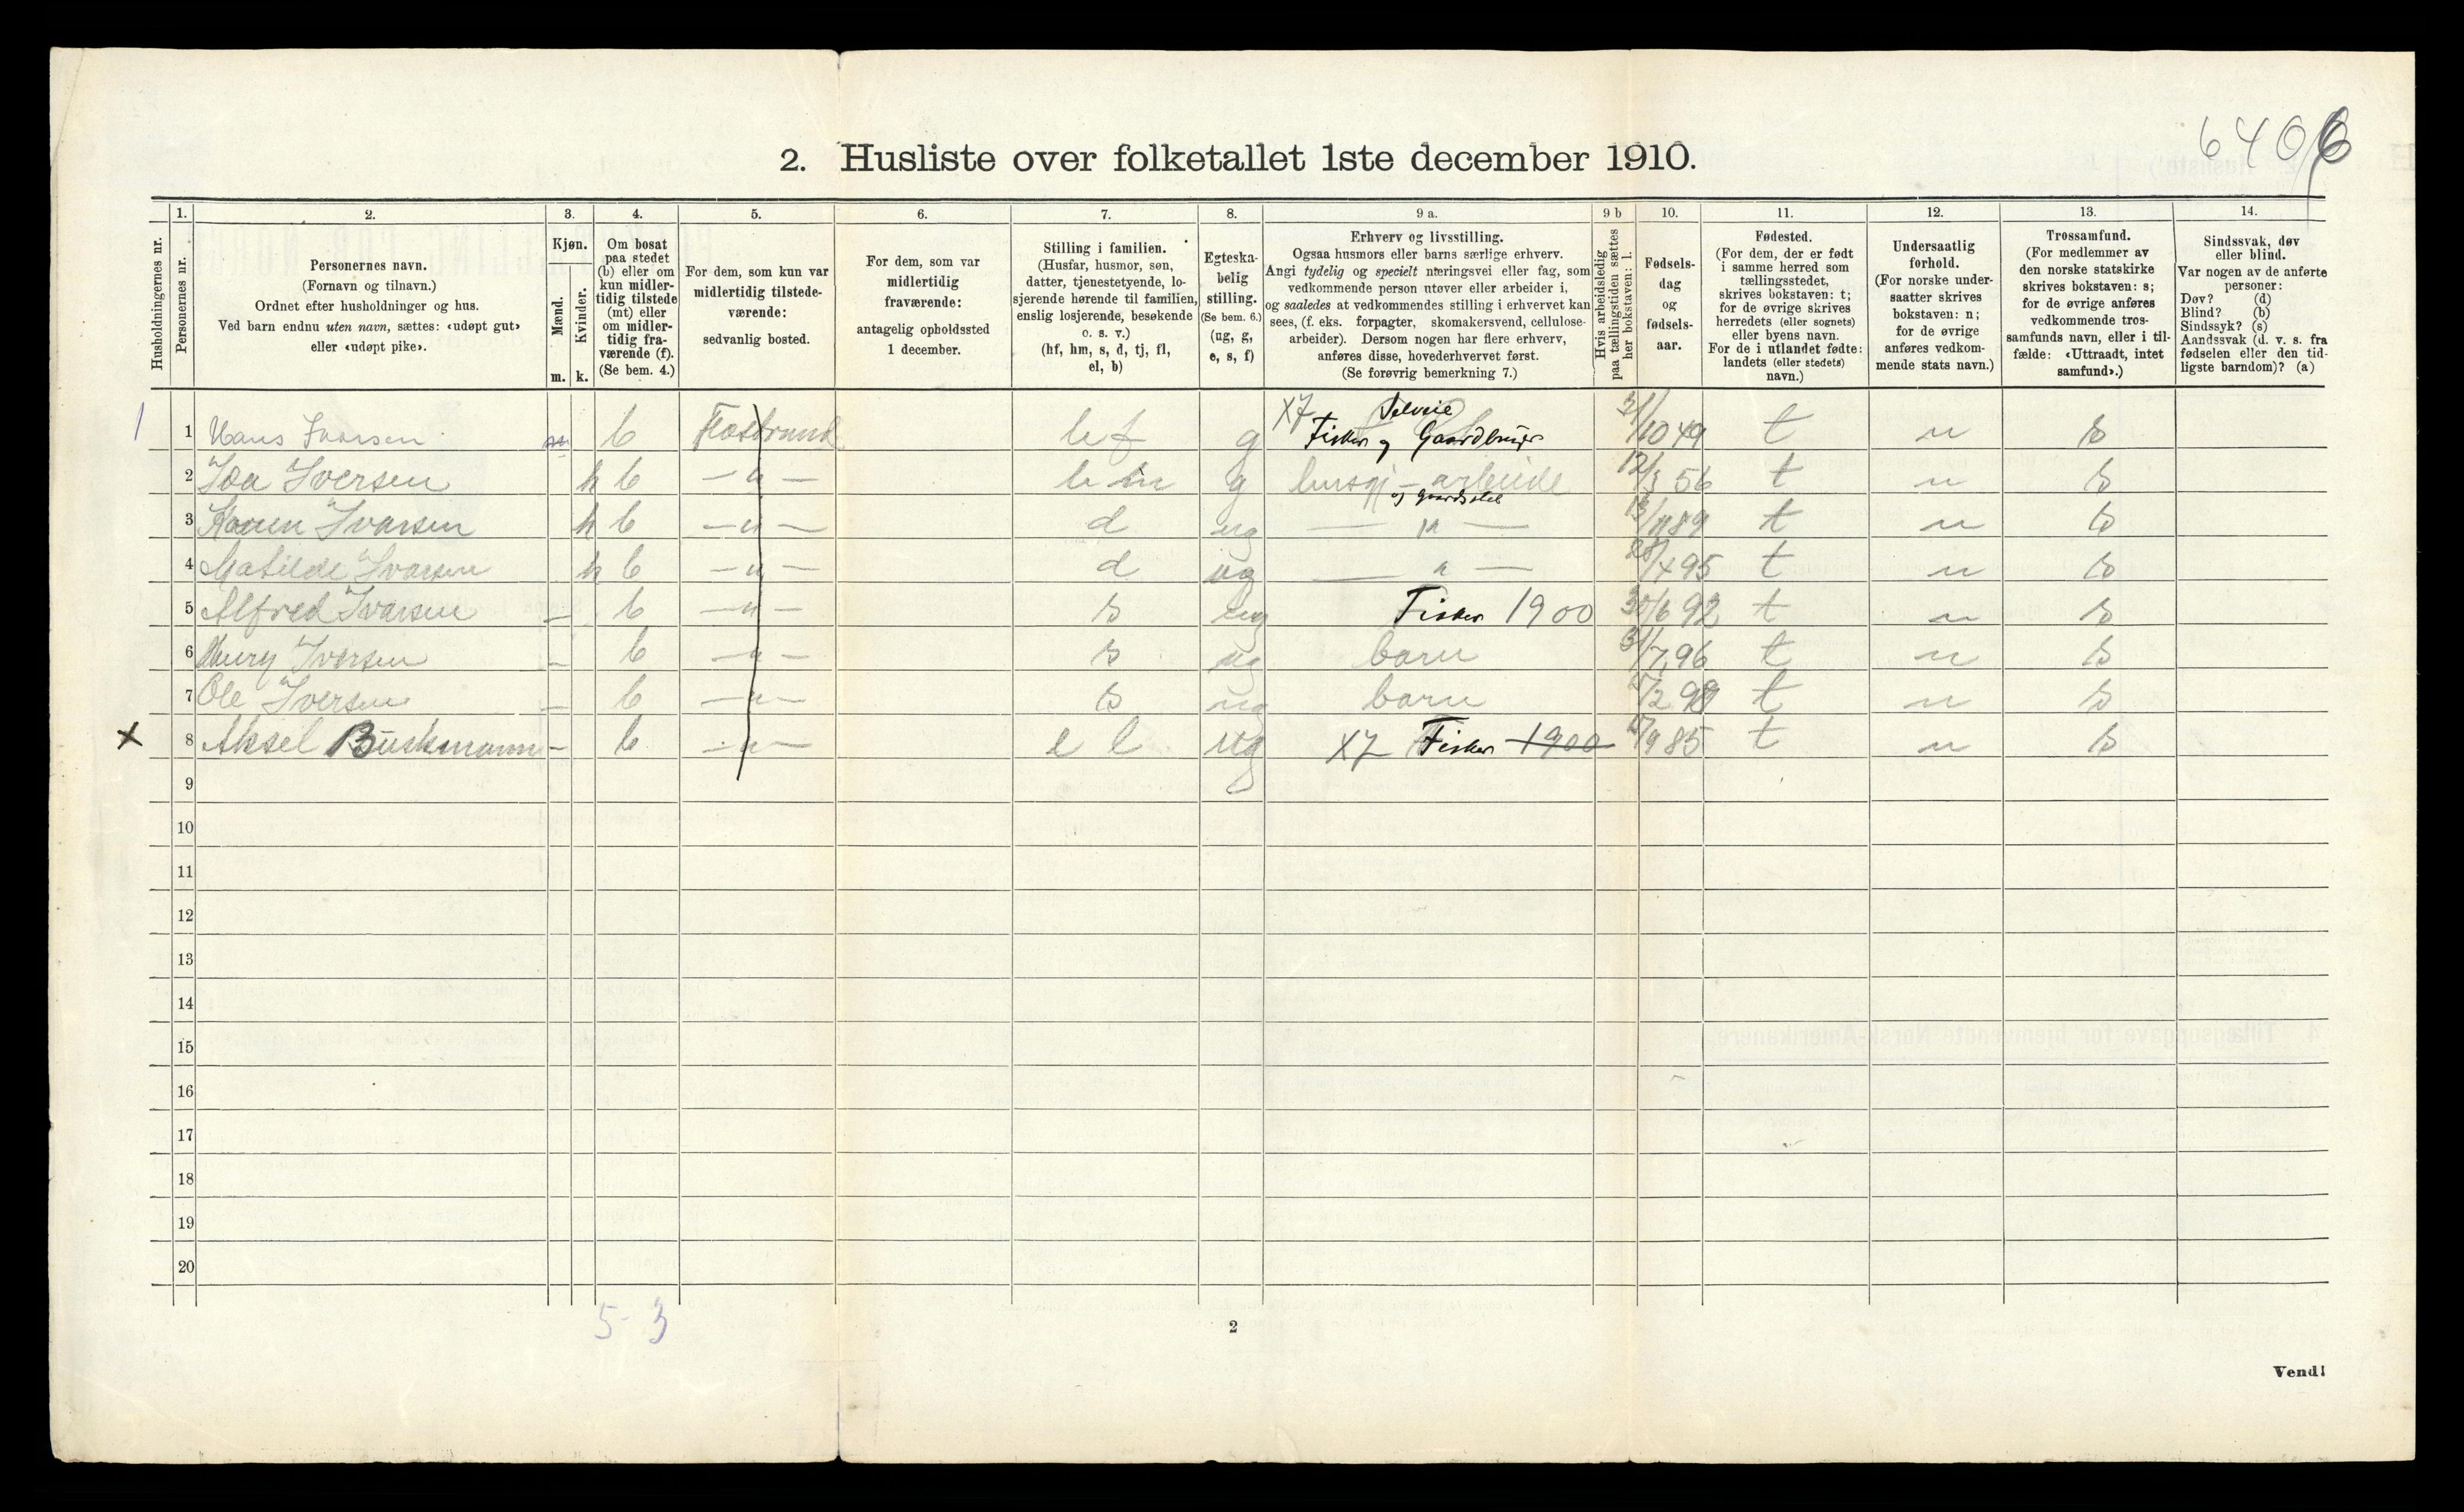 6406
2. Husliste over folketallet 1ste december 1910.
Husholdningernes nr.
1.
Personernes nr.
2.
Personernes navn.
(Fornavn og tilnavn.)
Ordnet efter husholdninger og hus.
Ved barn endnu uten navn, sættes: «udøpt gut»
eller «udøpt pike».
3.
Kjøn.
Mænd.
Kvinder.
m. k.
4.
Om bosat
paa stedet
(b) eller om
kun midler-
tidig tilstede
(mt) eller
om midler-
tidig fra-
værende (f).
(Se bem. 4.)
5.
For dem, som kun var
midlertidig tilstede-
værende:
sedvanlig bosted.
6.
For dem, som var
midlertidig
fraværende:
antagelig opholdssted
1 december.
7.
Stilling i familien.
(Husfar, husmor, søn,
datter, tjenestetyende, lo-
sjerende hørende til familien,
enslig losjerende, besøkende
o. s. v.)
(hf, hm, s, d, tj, fl,
el, b)
8.
Egteska-
belig
stilling.
(Se bem. 6.)
(ug, g,
e, s, f)
9 a.
Erhverv og livsstilling.
Ogsaa husmors eller barns særlige erhverv.
Angi tydelig og specielt næringsvei eller fag, som
vedkommende person utøver eller arbeider i,
og saaledes at vedkommendes stilling i erhvervet kan
sees, (f. eks. forpagter, skomakersvend, cellulose-
arbeider). Dersom nogen har flere erhverv,
anføres disse, hovederhvervet først.
(Se forøvrig bemerkning 7.)
9 b
Hvis arbeidsledig
paa tællingstiden sættes
her bokstaven: l.
10.
Fødsels-
dag
og
fødsels-
aar.
11.
Fødested.
(For dem, der er født
i samme herred som
tællingsstedet,
skrives bokstaven: t;
for de øvrige skrives
herredets (eller sognets)
eller byens navn.
For de i utlandet fødte:
landets (eller stedets)
navn.)
12.
Undersaatlig
forhold.
(For norske under-
saatter skrives
bokstaven: n;
for de øvrige
anføres vedkom-
mende stats navn.)
13.
Trossamfund.
(For medlemmer av
den norske statskirke
skrives bokstaven: s;
for de øvrige anføres
vedkommende tros-
samfunds navn, eller i til-
fælde: «Uttraadt, intet
samfund».)
14.
Sindssvak, døv
eller blind.
Var nogen av de anførte
personer:
Døv? (d)
Blind? (b)
Sindssyk? (s)
Aandssvak (d. v. s. fra
fødselen eller den tid-
ligste barndom)? (a)
X7 Selveie
1 1 Hans Ivarsen m b hf g Fisker og Gaardbruger 31/10 49 t n s
2 Ida Iversen k b — " — hm g husgj-arbeide 12/3 56 t n s
og Gaardsstel
3 Karen Ivarsen k b — " — d ug — " — 13/11 89 t n s
4 Matilde Ivarsen k b — " — d ug — " — 28/4 95 t n s
5 Alfred Ivarsen — b — " — s ug Fisker 1900 30/6 92 t n s
6 Henry Iversen — b — " — s ug barn 31/7 96 t n s
7 Ole Iversen — b — " — s ug barn t n s
X 8 Aksel Buskmann — b — " — e l ug X7 Fisker 1900 17/9 85 t n s
9
10
11
12
13
14
15
16
17
18
19
20
5-3
2
Vend!